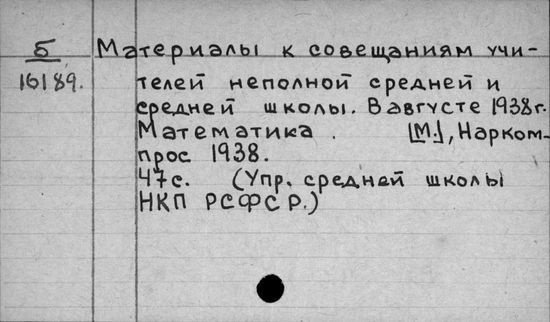 Б Материалы к совещаниям учи-
16189. телей неполной средней и
средней школы. В августе 1938г.
Математика. [М.], Нарком-
прос 1938.
47с. (Упр. средней школы
НКП РСФСР.)